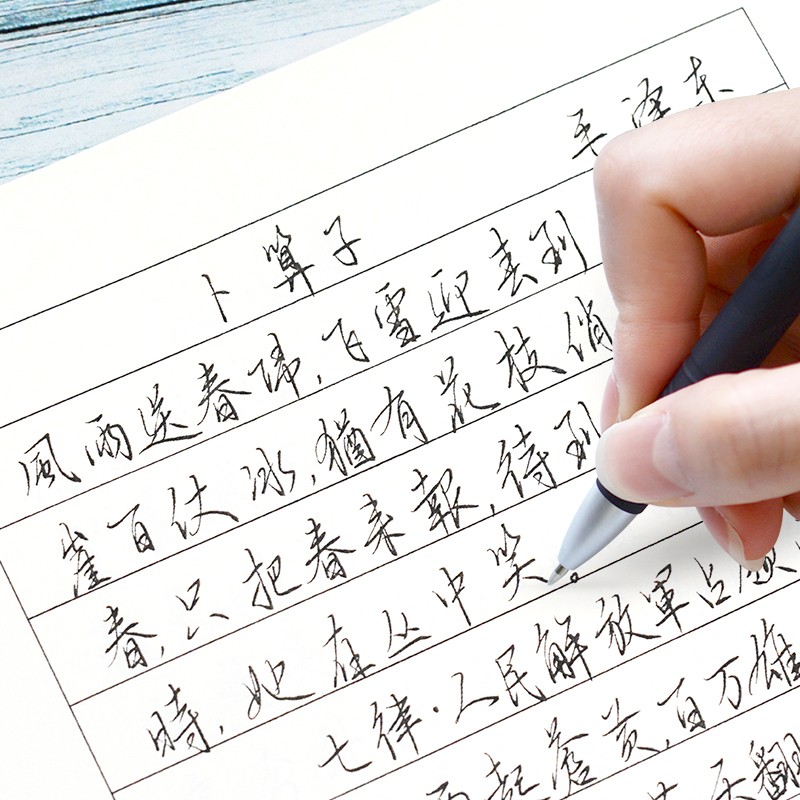 毛泽东
卜算子
風雨送春歸,飞雪迎春到
崖百仗冰,猶有花枝俏
春,只把春来報,待到
時,她在丛中笑。
七律·人民解放軍占
雨起蒼黄,百万雄
天翻